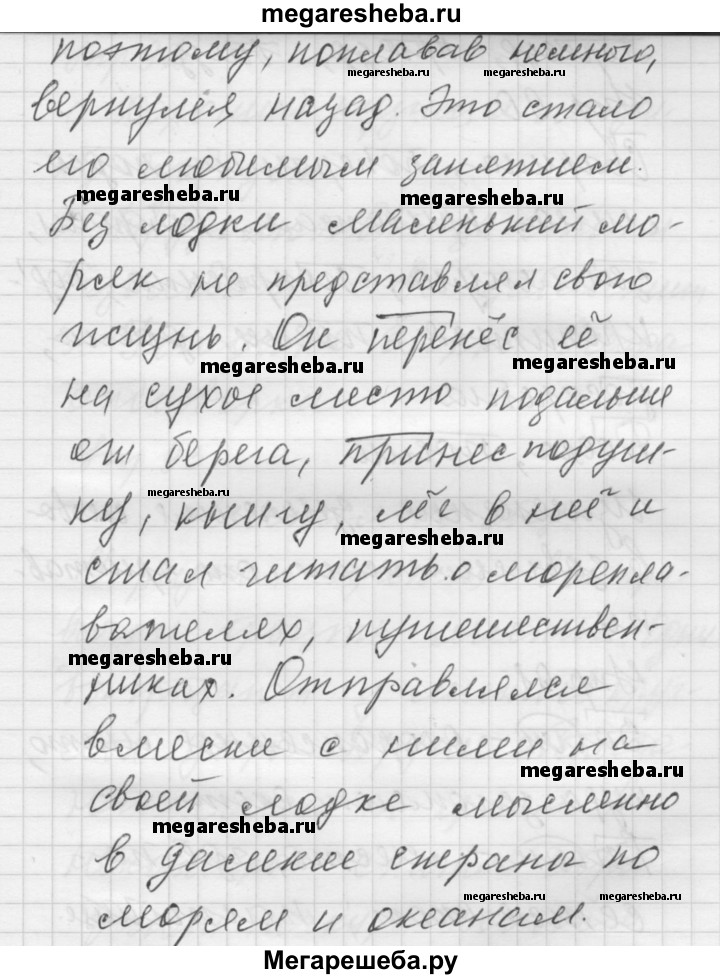 megaresheba.ru
поэтому, поплавав немного,
megaresheba.ru megaresheba.ru
вернулся назад. Это стало
его любимым занятием.
megaresheba.ru megaresheba.ru
Без лодки маленький мо-
ряк не представлял свою
жизнь. Он перенёс её
megaresheba.ru megaresheba.ru
на сухое место подальше
от берега, принёс подуш-
megaresheba.ru
ку, книгу, лёг в неё и
megaresheba.ru
стал читать о морепла-
вателях, путешествен-
megaresheba.ru
никах. Отправлялся
вместе с ними на
megaresheba.ru
своей лодке мысленно
megaresheba.ru
в далёкие страны по
megaresheba.ru megaresheba.ru
морям и океанам.
Мегарешеба.ру